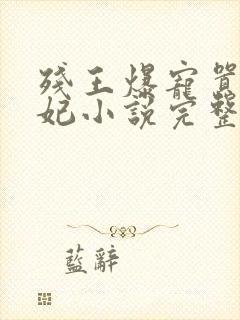 残王爆寵囂
妃小說完整
藍辭